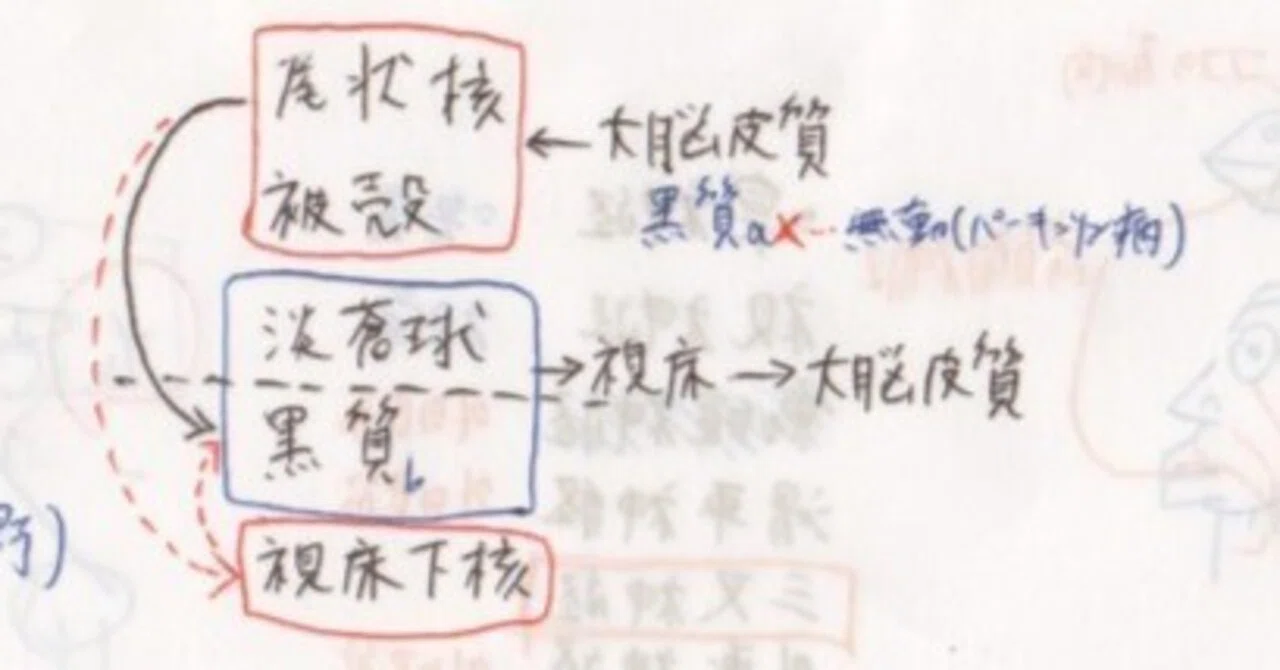 尾状核
被殻
←大脳皮質
黒質a×…無動(パーキンソン病)
淡蒼球
→視床→大脳皮質
黒質b
野)
視床下核